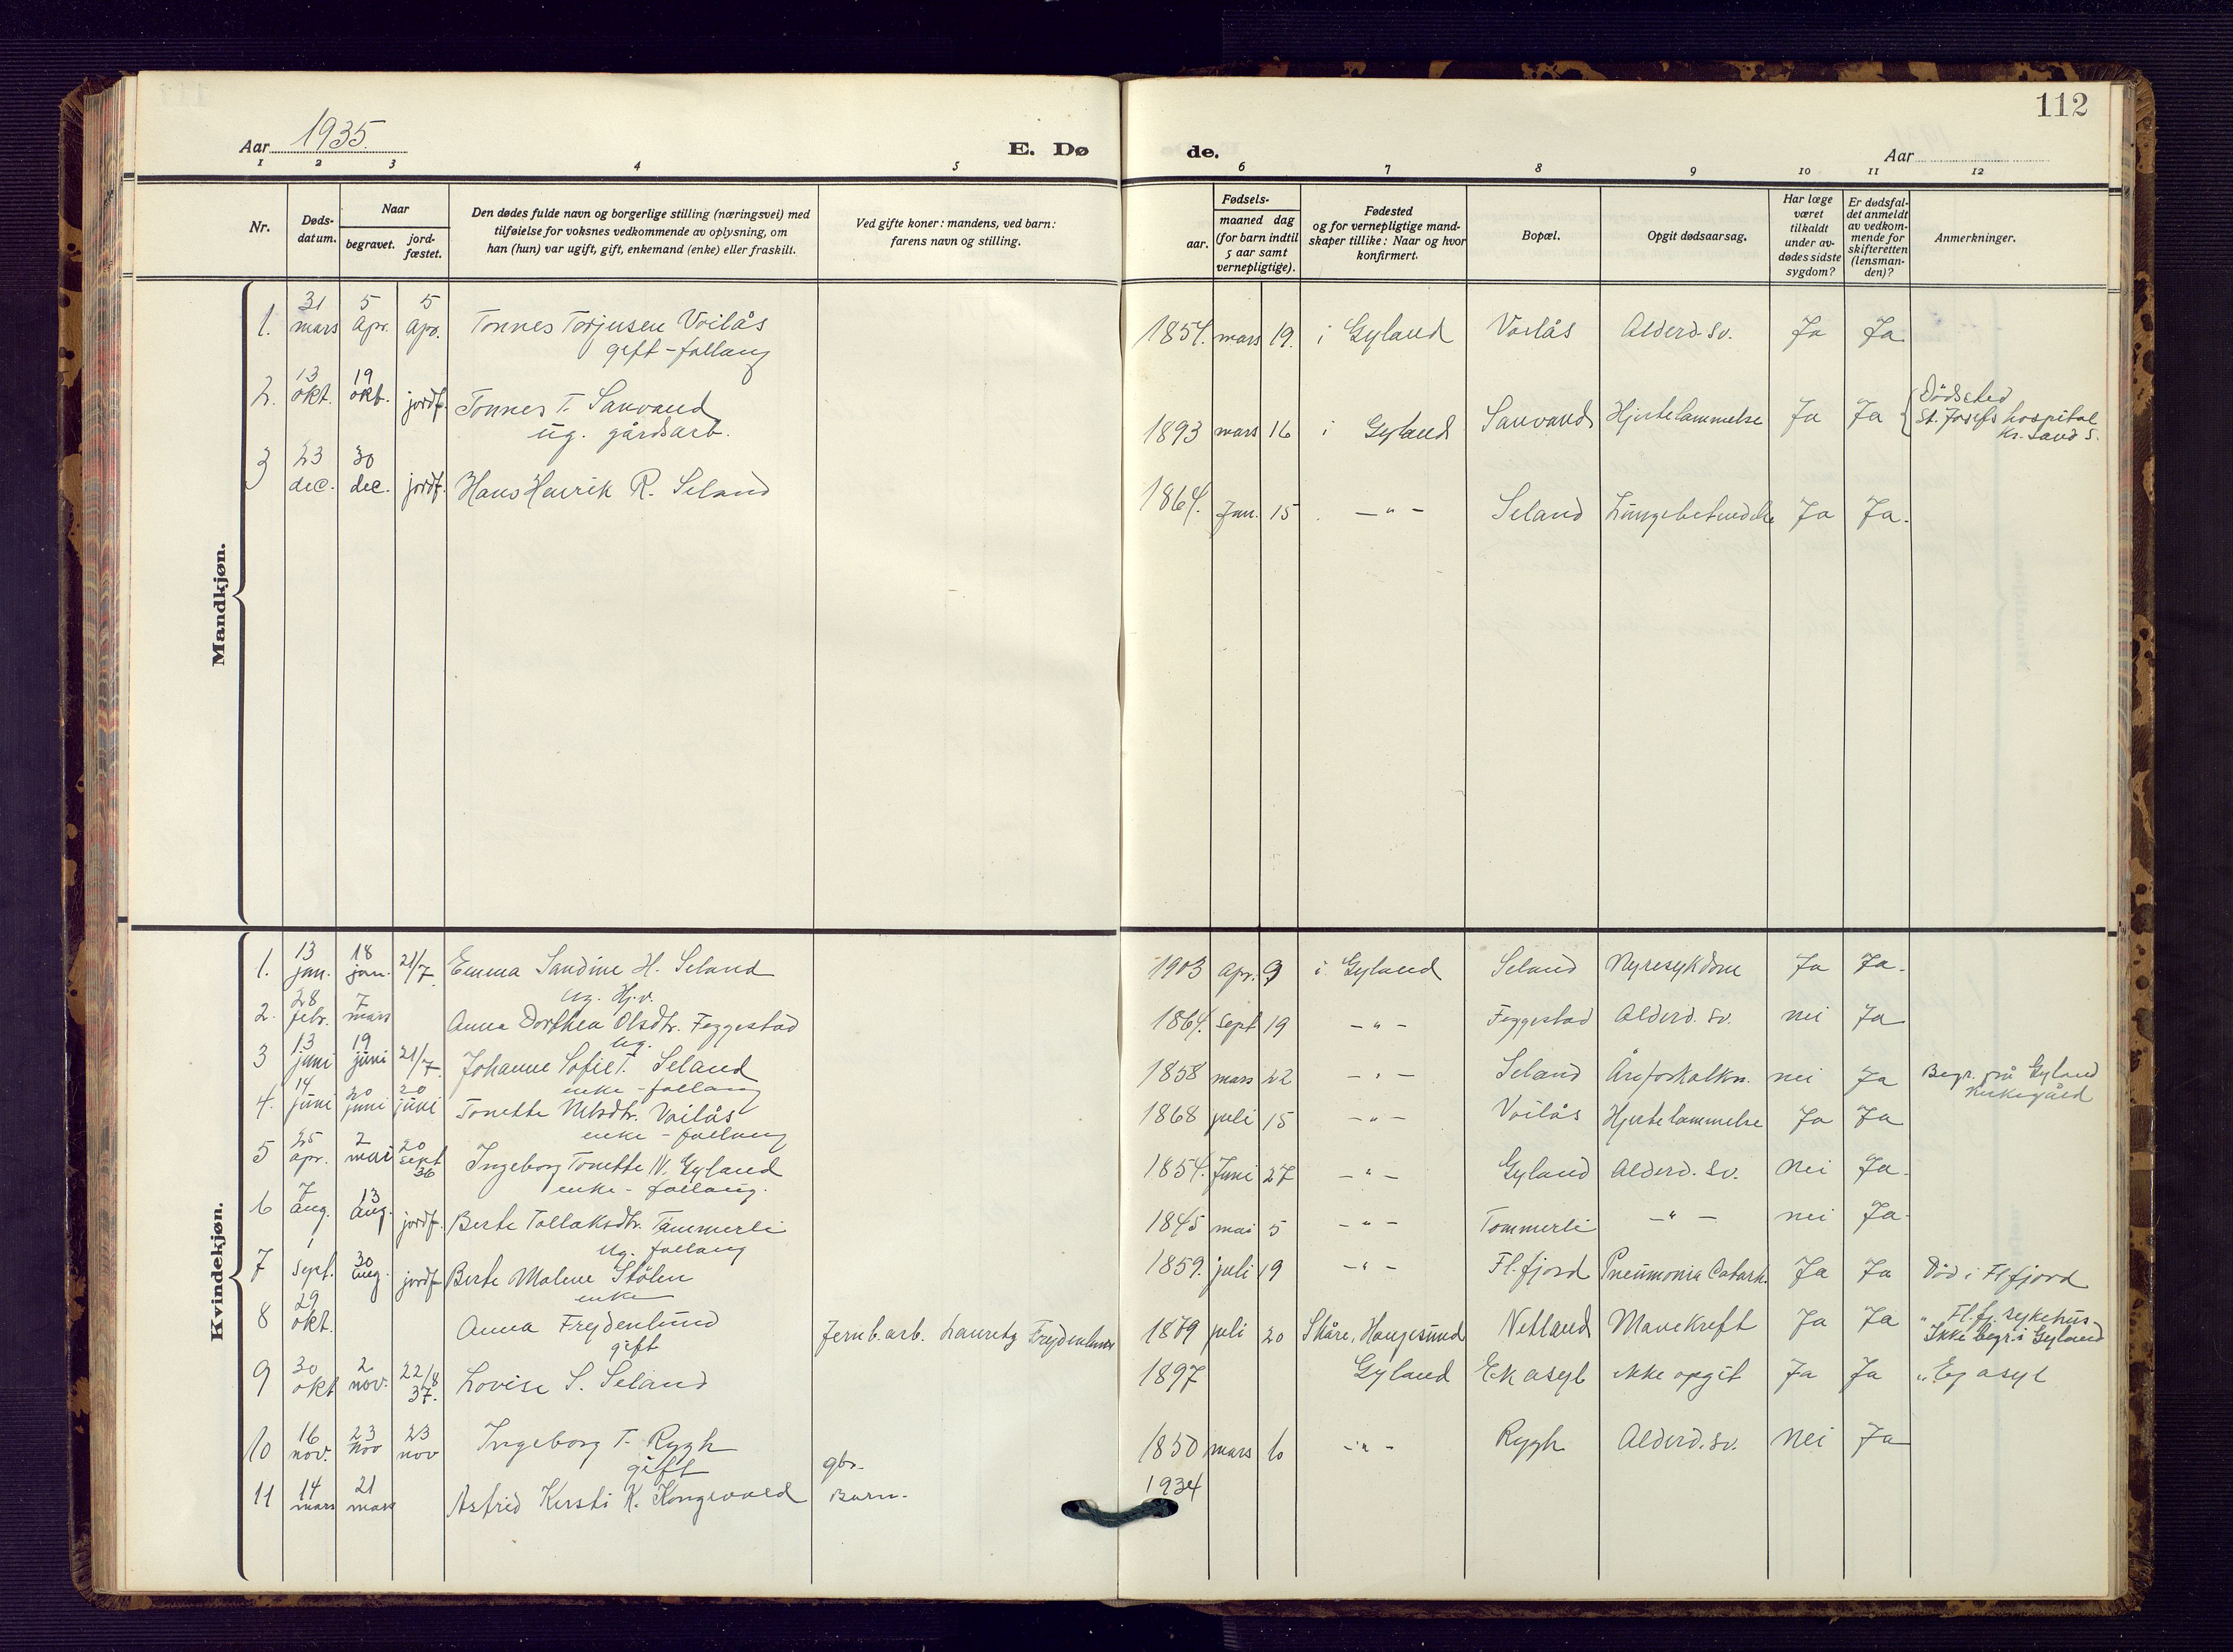 112
Aar 1935.
E. Dø
de.
Aar
1 2 3 4 5 6 7 8 9 10 11 12
Nr.
Døds-
datum.
Naar
begravet.
jord-
fæstet.
Den dødes fulde navn og borgerlige stilling (næringsvei) med
tilføielse for voksnes vedkommende av oplysning, om
han (hun) var ugift, gift, enkemand (enke) eller fraskilt.
Ved gifte koner: mandens, ved barn:
farens navn og stilling.
Fødsels-
aar.
maaned dag
(for barn indtil
5 aar samt
vernepligtige).
Fødested
og for vernepligtige mand-
skaper tillike: Naar og hvor
konfirmert.
Bopæl.
Opgit dødsaarsag.
Har læge
været
tilkaldt
under av-
dødes sidste
sygdom?
Er dødsfal-
det anmeldt
av vedkom-
mende for
skifteretten
(lensman-
den)?
Anmerkninger.
Mandkjøn.
1. 31 mars 5 apr. 5 apr. Tonnes Torjusen Voilås 1854. mars 19. i Gyland Voilås Alderd. sv. Ja Ja
gift - follaug
2. 13 okt. 19 okt. jordf. Tonnes T. Sanvand 1893 mars 16 i Gyland Sanvand Hjertelammelse Ja Ja Dödsted
ug. gårdsarb. St. Josefs hospital
Kr. sand S.
3 23 dec. 30 dec. jordf. Hans Henrik R. Seland 1864. Jan. 15 - " - Seland Lungebetendelse Ja Ja.
Kvindekjøn.
1. 13 jan. 18 jan. 21/7. Emma Sandine H. Seland 1903 apr. 9 i Gyland Seland Nyresykdom Ja Ja.
ug. Hj.v.
2. 28 febr. 7 mars Anna Dorthea Olsdtr. Feggestad 1864. sept 19 - " - Feggestad Alderd. sv. nei Ja
ug.
3 13 juni 19 juni 21/7. Johanne Sofie T. Seland 1858 mars 22 - " - Seland Åreforkalkn. nei Ja Begr. på Gyland
enke - follaug Kirkegård
4. 14 juni 20 juni 20 juni Tonette Nilsdtr. Voilås 1868 juli 15 - " - Voilås Hjertelammelse Ja Ja
enke - follaug
5 25 apr. 2 mai 20 sept 36 Ingeborg Tonette N. Gyland 1854. Juni 27 - " - Gyland Alderd. sv. Nei Ja.
enke - follaug.
6 7 aug. 13 aug. jordf. Berte Tollaksdtr. Tømmerli 1845 mai 5 - " - Tommerli - " - nei Ja.
ug. follaug
7 1 sept. 30 aug. jordf Berte Malene Stölen 1859. juli 19 - " - Fl.fjord Pneumonia Catarh. Ja Ja Död i Flfjord
enke
8 29 okt. Anna Frejdenlund Jernb.arb. Lauretz Frejdenlund 1879 juli 20 Skåre, Haugesund Netland Mavekreft Ja Ja " Fl.fj. sykehus
gift Ikke begr. i Gyland
9 30 okt 2 nov. 22/8 37. Lovise S. Seland 1897 Gyland Ek asyl ikke opgit Ja Ja " Eg asyl
10 16 nov. 23 nov 23 nov Ingeborg T. Rygh gbr. 1850 mars 6 - " - Rygh Alderd. sv. Nei Ja
gift
11 14 mars 21 mars Astrid Kirsti K. Kongevold Barn. 1934